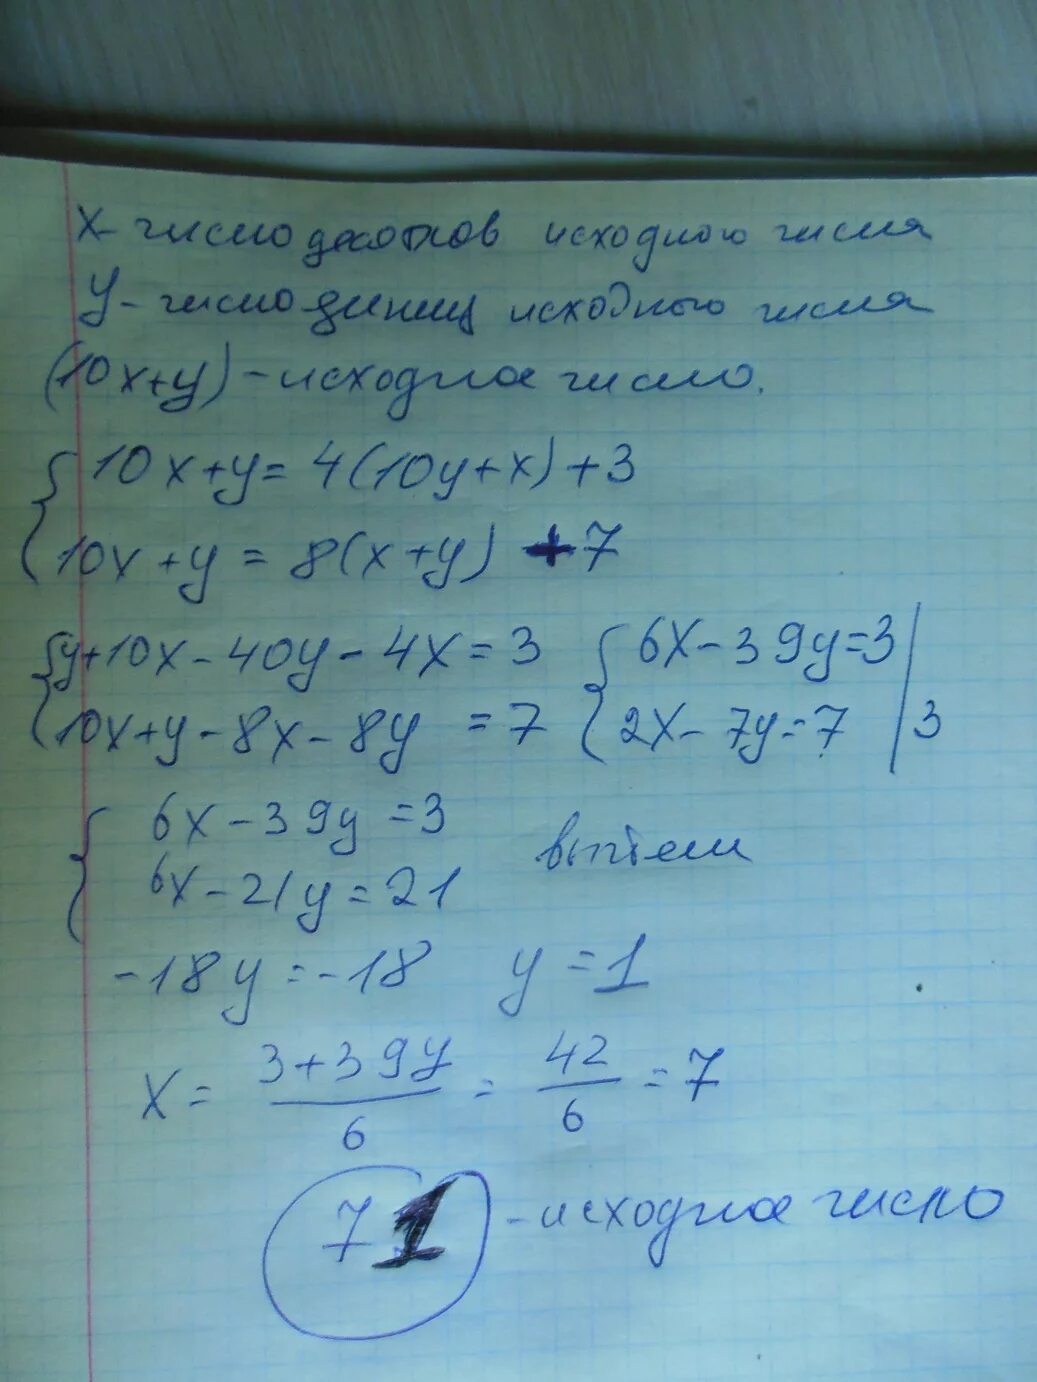 x - число десятков исходного числа
y - число единиц исходного числа
(10x+y) - исходное число.
{ 10x+y = 4(10y+x)+3
10x+y = 8(x+y) + 7
{ y+10x-40y-4x=3 { 6x-39y=3
10x+y-8x-8y =7 2x-7y=7 | 3
{ 6x-39y=3
6x-21y=21 вычтем
-18y=-18 y=1
x = (3+39y)/6 = 42/6 = 7
71 - исходное число